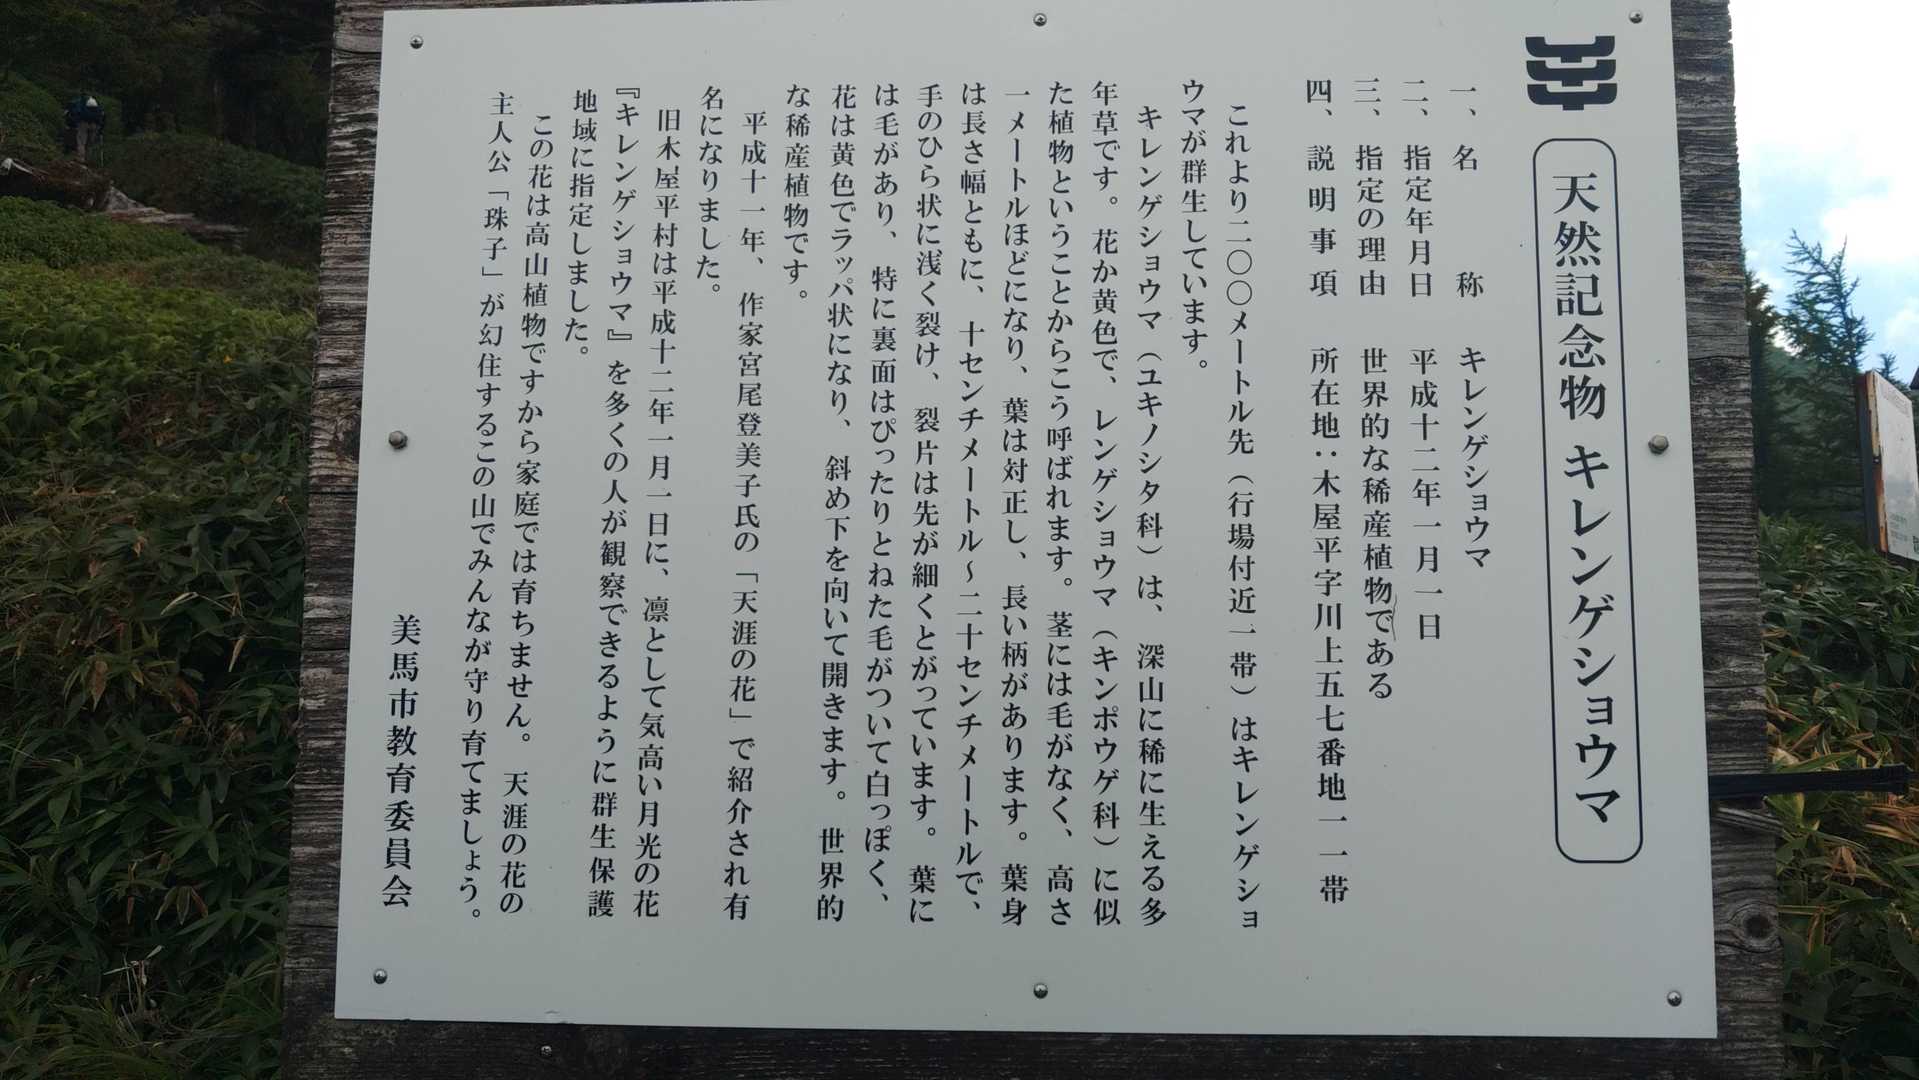 天然記念物 キレンゲショウマ
一、名称 キレンゲショウマ
二、指定年月日 平成十二年一月一日
三、指定の理由 世界的な稀産植物である
四、説明事項 所在地：木屋平字川上五七番地一一帯
これより二〇〇メートル先（行場付近一帯）はキレンゲショ
ウマが群生しています。
キレンゲショウマ（ユキノシタ科）は、深山に稀に生える多
年草です。花か黄色で、レンゲショウマ（キンポウゲ科）に似
た植物ということからこう呼ばれます。茎には毛がなく、高さ
一メートルほどになり、葉は対正し、長い柄があります。葉身
は長さ幅ともに、十センチメートル～二十センチメートルで、
手のひら状に浅く裂け、裂片は先が細くとがっています。葉に
は毛があり、特に裏面はぴったりとねた毛がついて白っぽく、
花は黄色でラッパ状になり、斜め下を向いて開きます。世界的
な稀産植物です。
平成十一年、作家宮尾登美子氏の「天涯の花」で紹介され有
名になりました。
旧木屋平村は平成十二年一月一日に、凛として気高い月光の花
『キレンゲショウマ』を多くの人が観察できるように群生保護
地域に指定しました。
この花は高山植物ですから家庭では育ちません。天涯の花の
主人公「珠子」が幻住するこの山でみんなが守り育てましょう。
美馬市教育委員会